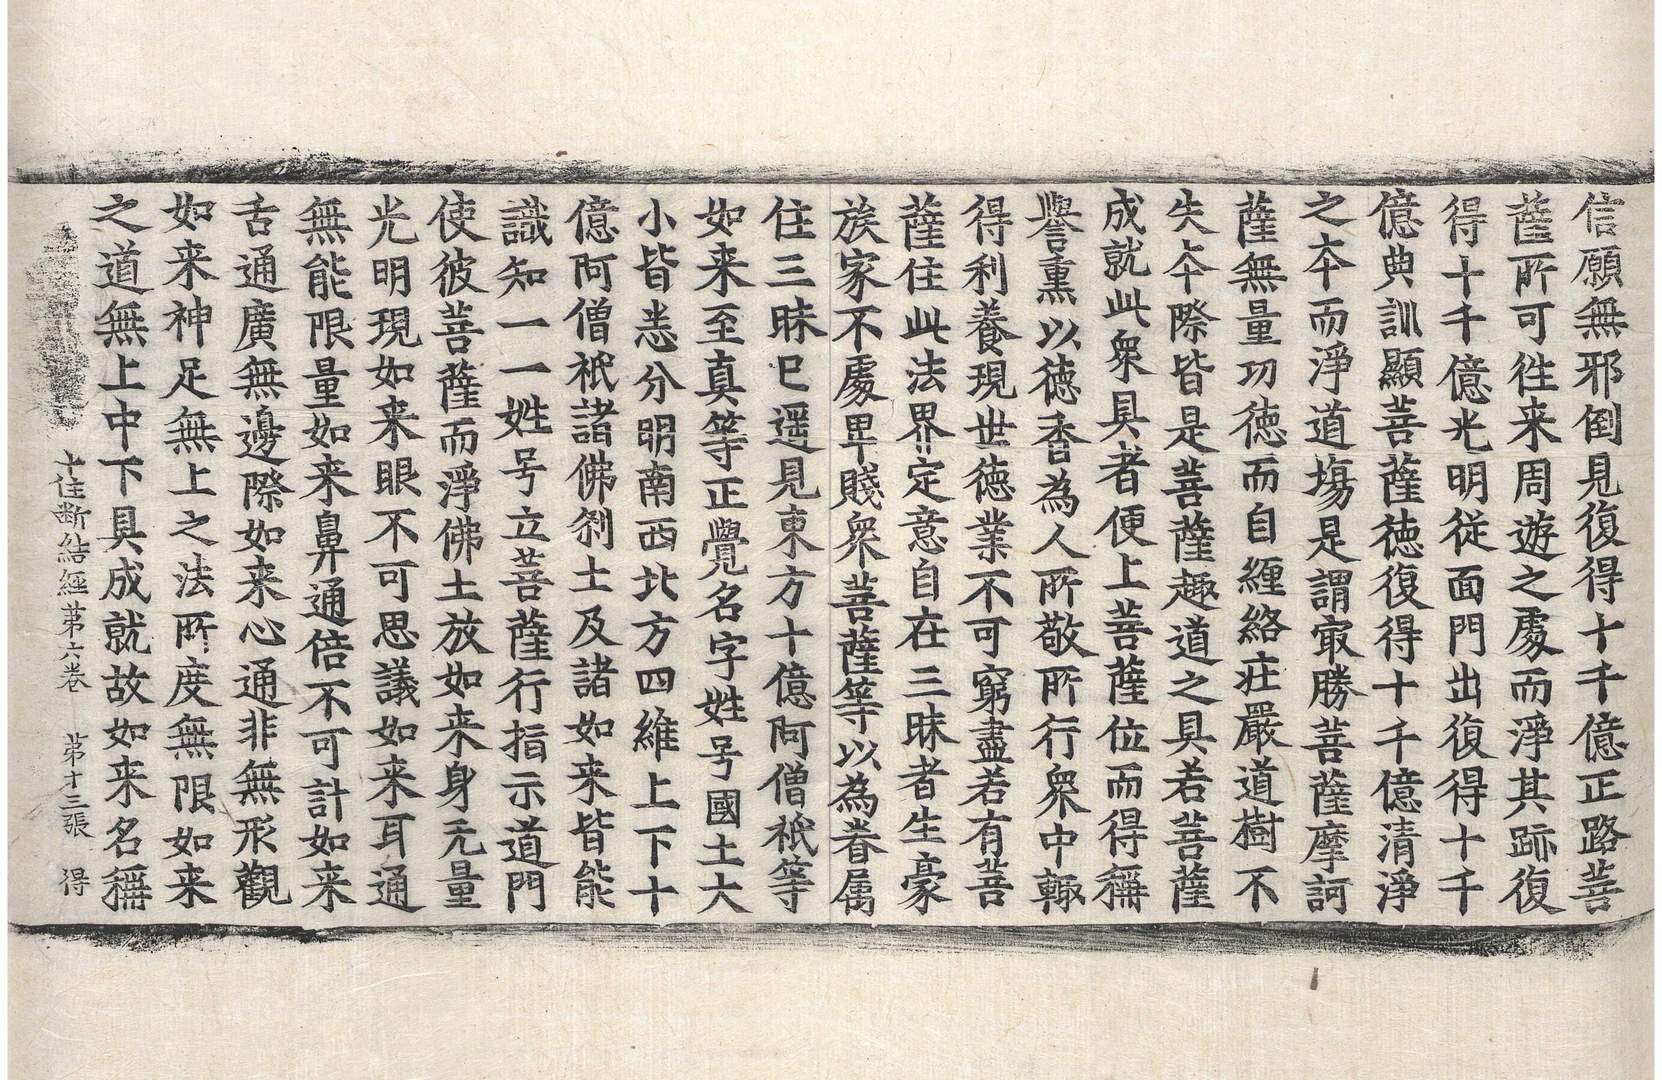 信願無邪倒見復得十千億正路菩
薩所可徃来周遊之處而淨其跡復
得十千億光明従面門出復得十千
億典訓顯菩薩徳復得十千億清淨
之夲而淨道塲是謂㝡勝菩薩摩訶
薩無量功徳而自纒絡莊嚴道樹不
失夲際皆是菩薩趣道之具若菩薩
成就此衆具者便上菩薩位而得稱
譽熏以徳香為人所敬所行衆中輙
得利養現世徳業不可窮盡若有菩
薩住此法界定意自在三昧者生豪
族家不處卑賤衆菩薩等以為眷属
住三昧已遥見東方十億阿僧祇等
如来至真等正覺名字姓号國土大
小皆悉分明南西北方四維上下十
億阿僧祇諸佛刹土及諸如来皆能
識知一一姓号立菩薩行指示道門
使彼菩薩而淨佛土放如来身无量
光明現如来眼不可思議如来耳通
無能限量如来鼻通倍不可計如来
舌通廣無邊際如来心通非無形觀
如来神足無上之法所度無限如来
之道無上中下具成就故如来名稱
十住断結經苐六卷 苐十三張 得